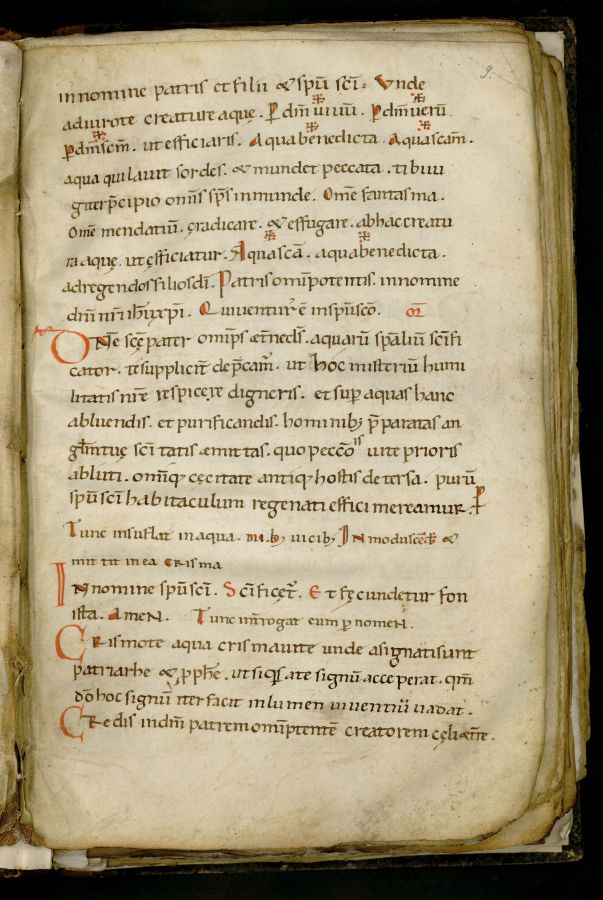 9.
in nomine patris et filii & spū scī. Unde
adiurote creature aquę. P̲ dm̄ uiuū. P̲ dm̄ uerū
P̲ dm̄ scm̄. ut efficiaris. Aqua benedicta. Aqua scam̄.
aqua qui lauit sordes. & mundet peccata. tibi ui
gitur p̄cipio om̄s sp̄s inmunde. Om̄e fantasma.
Om̄e mendatiū. ęradicare. & effugare. ab hac creatu
ra aquę. ut efficiatur. Aqua scā. aqua benedicta.
ad regendos filios dī. Patris om̄ipotentis. in nomine
dn̄i nr̄i ihū xp̄i. Qui uentur' ē in sp̄u sco. or̄
OMē scē pater om̄ips æt̄ne ds̄. aquarū sp̄aliū scīfi
cator. te supplicit̄ dep̄cam̄'. ut hoc misteriū humi
litatis nr̄e respicere digneris. et sup̲ aquas hanc
abluendis. et purificandis. hominib; p̄paratas an
gl̄m tuę scī tatis æmittas. quo peccō is uite prioris
abluti. om̄iq; cęcitate antiq; hostis detersa. purū
spū scī habitaculum regenati effici mereamur. P̲
Tunc insuflat in aqua. iii. b; uicib; IN modus cē &
mittit in ea crisma
In nomine spū scī. Scīficęt'. Et fęcundetur fon
ista. AmeN. Tunc int̄rogat eum p̲ nomeN.
CRismote aqua crismauite unde asignati sunt
patriarhe & p̲phē. ut siq; ate signū acceperat. qm̄
dō hoc signū iter facit in lumen uiuentiū uadat.
CRedis in dm̄ patrem om̄iptentē creatorem cęli æt̄re.